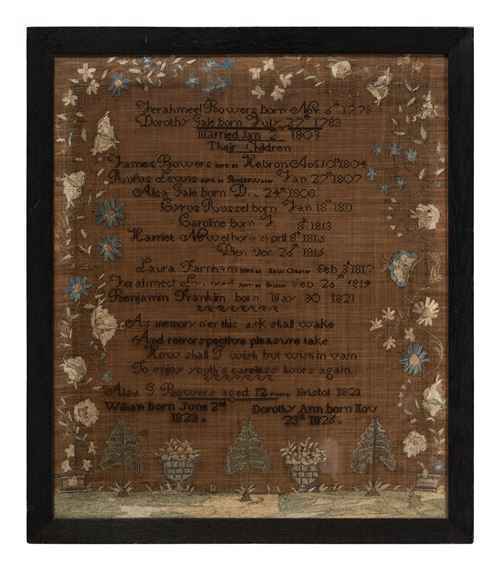 Jerahmeel Bowers born Nov. 6th 1778
Dorothy Gale born July 22th 1783
Married Jan 2 1803
Their Children
James Bowers born at Hebron Aug 10th 1804
Rufus Lewis born at Jan 27th 1807
Alsa Gale born 24th 1808
Cyrus Russel born Jan 18th 1811
Caroline born 8th 1813
Harriet Newel born April 8th 1815
Dec 26th 1815
Laura Farnham born at Chester Feb 3th 1817
Jerahmeel born at Bristol Feb 26th 1819
Benjamin Franklin born May 30 1821
As memory o'er this task shall wake
And retrospective pleasure take
How shall I wish but wish in vain
To enjoy youth's careless hours again
Alsa G. Bowers aged 12 years Bristol 1821
William born June 2nd Dorothy Ann born Nov
1823 23d 1825